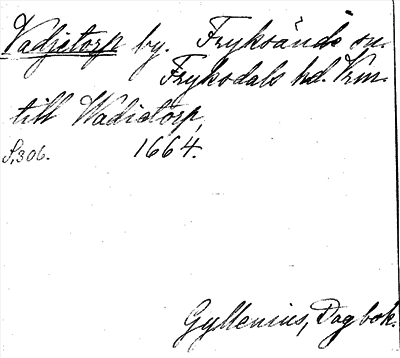 Vadjetorp by. Fryksände sn.
Fryksdals hd. Vrm.
till Wadietorp,
S. 306. 1664.
Gyllenius, Dagbok.